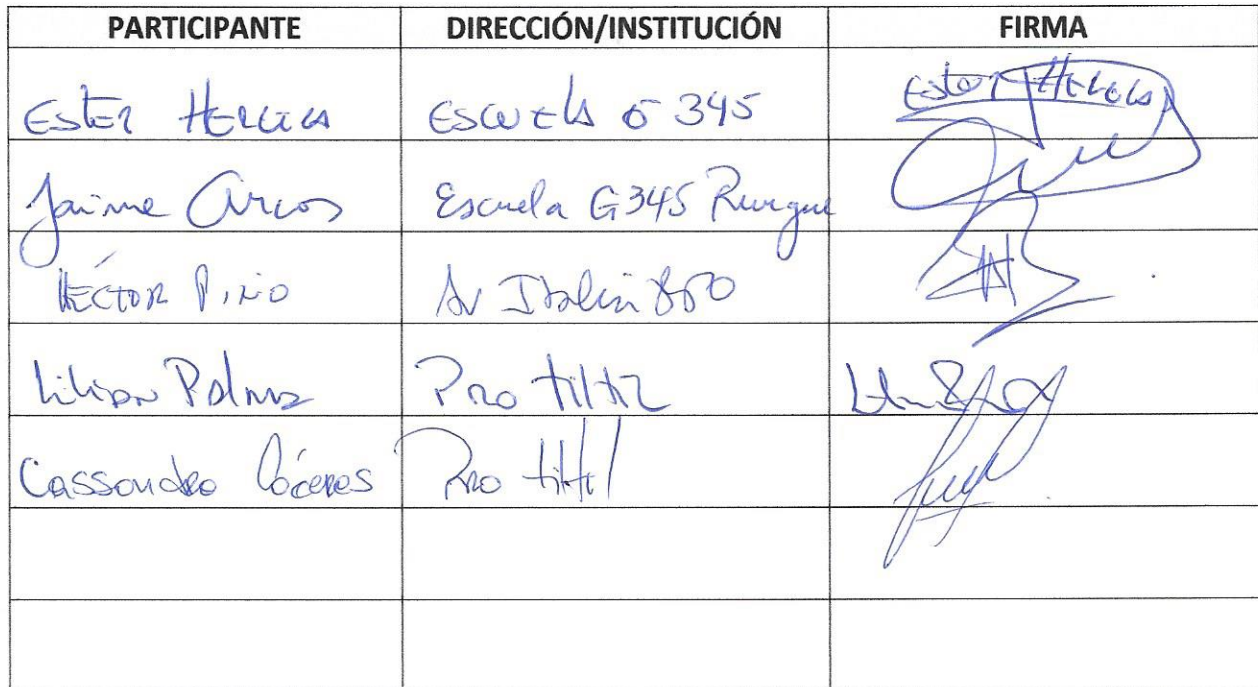 PARTICIPANTE DIRECCIÓN/INSTITUCIÓN FIRMA
Ester Escuela G 345 Ester
Jaime Arcos Escuela G345 Rungue
HÉCTOR PINO Av Italia 850
Lilian Palma Pro tiltil
Cassandra Cáceres Pro tiltil